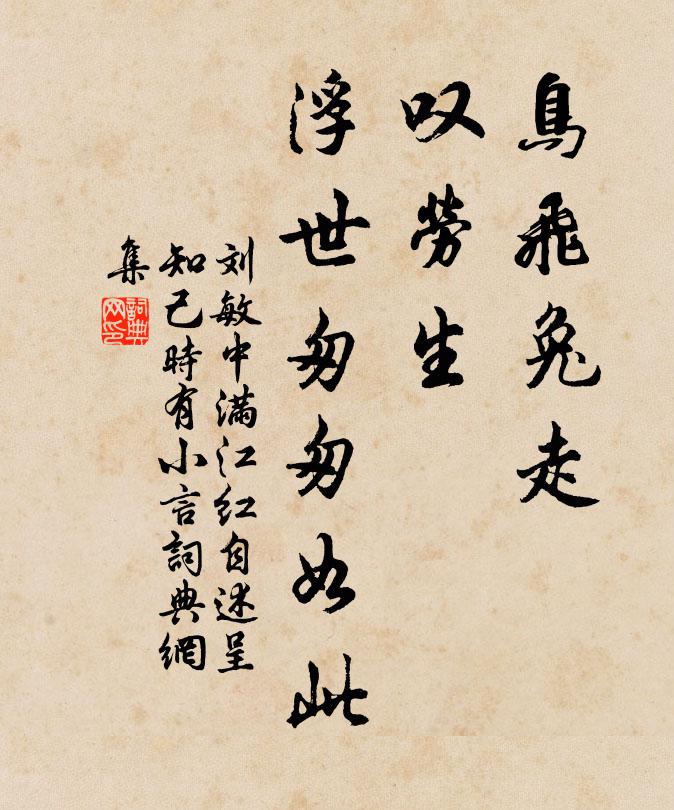 烏飛兔走
叹勞生
浮世匆匆如此
刘敏中满江红自述呈
知己時有小言詞典網
集
詞典
网印